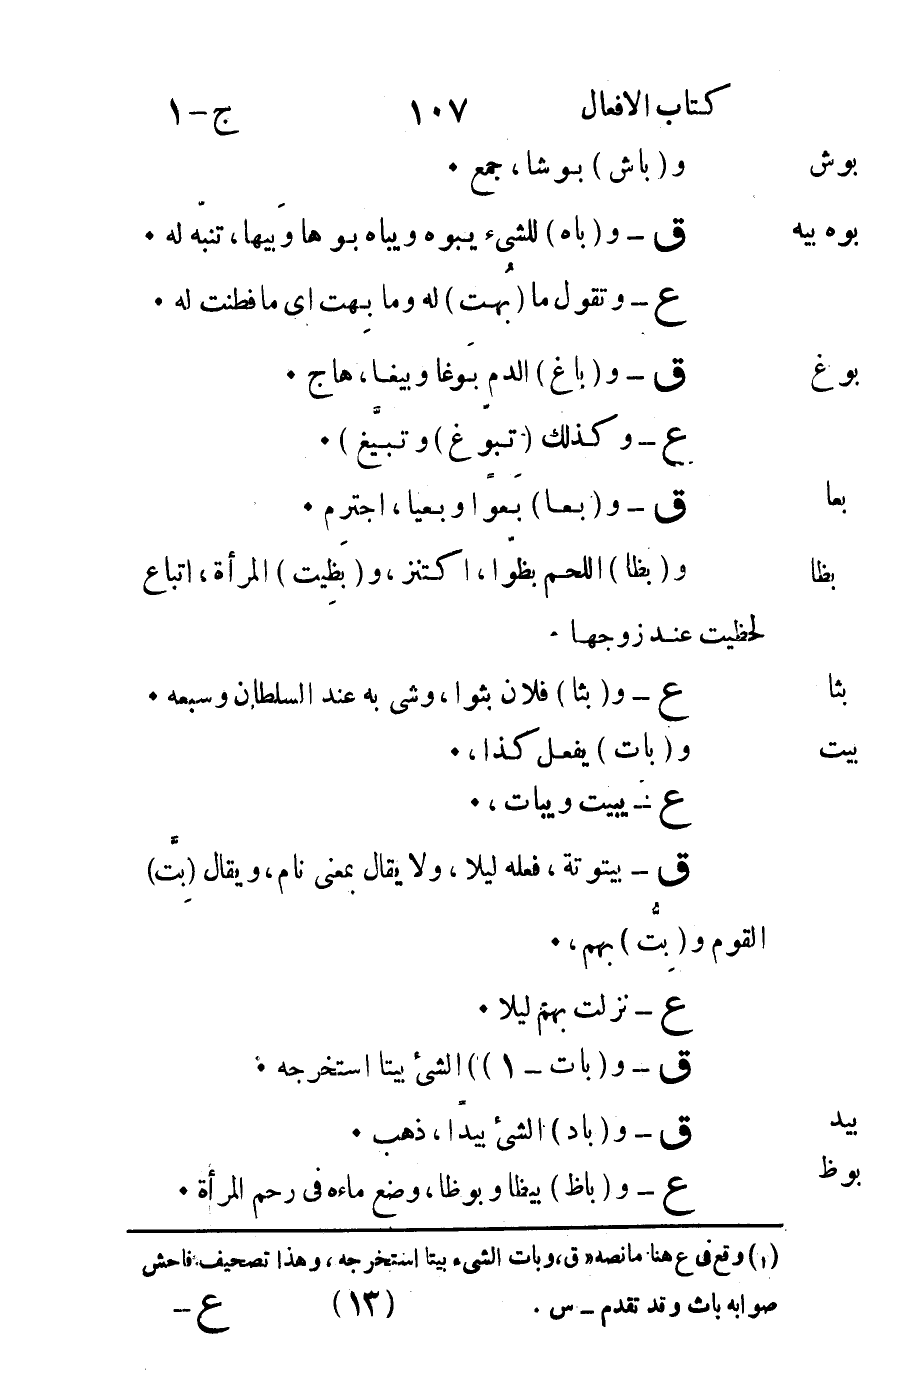 كتاب الافعال ١٠٧ ج-١
بوش و (باش) بوشا، جمع ٠
بوه بيه ق - و (باه) للشىء يبوه ويباه بوها وَبيها، تنبّه له ٠
ع - وتقول ما (بُهت) له وما بِهت اى ما فطنت له ٠
بوغ ق - و (باغ) الدم بَوغا وبيغا، هاج ٠
ع - وكذلك (تبوّغ) وتبيَّغ) ٠
بعا ق - و (بعا) بَعوًا وبعيا، اجترم ٠
بظا و (بظا) اللحم بظوّا، اكتنز، و (بَظِيت) المرأة، اتباع
لحظيت عند زوجها ٠
بثا ع - و (بثا) فلان بثوا، وشى به عند السلطان وسبعه ٠
بيت و (بات) يفعل كذا، ٠
ع - يبيت ويبات، ٠
ق - بيتوتة، فعله ليلا، ولا يقال بمعنى نام، ويقال (بِتَّ)
القوم و (بِتُّ) بهم، ٠
ع - نزلت بهم ليلا ٠
ق - و (بات - ١)) الشئ بيتا استخرجه ٠
بيد ق - و (باد) الشئ بيدًا، ذهب ٠
بوظ ع - و (باظ) بيظا وبوظا، وضع ماءه فى رحم المرأة ٠
(١) وقع فى ع هنا مانصه «ق، وبات الشىء بيتا استخرجه، وهذا تصحيف فاحش
صوابه باث وقد تقدم - س ٠ (١٣) ع -